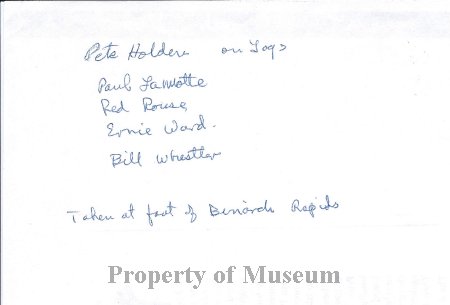 Pete Holdern on Logs
Paul Lamotte
Red Rouse
Ernie Ward.
Bill Whestler
Taken at foot of Benards Rapids
Property of Museum